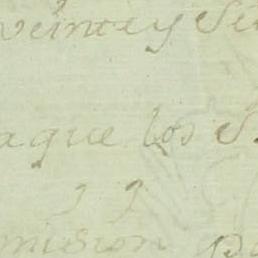 veinte y Se
aque los S
mision Pa